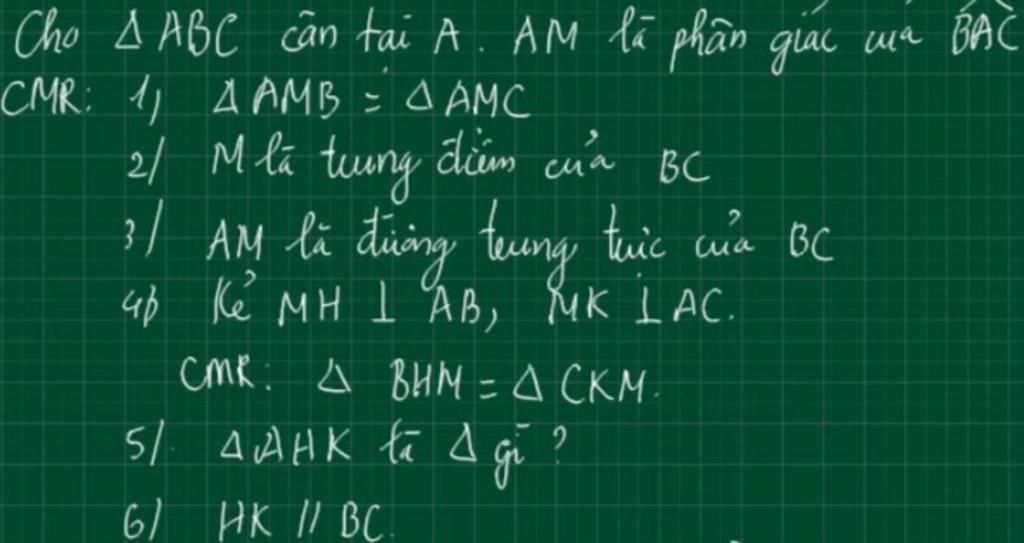 Cho Δ ABC cân tại A. AM là phân giác của BAC
CMR: 1) Δ AMB = Δ AMC
2/ M là trung điểm của BC
3/ AM là đường trung trực của BC
4/ Kẻ MH ⊥ AB, MK ⊥ AC.
CMR: Δ BHM = Δ CKM.
5/. Δ AHK là Δ gì?
6/ HK // BC.